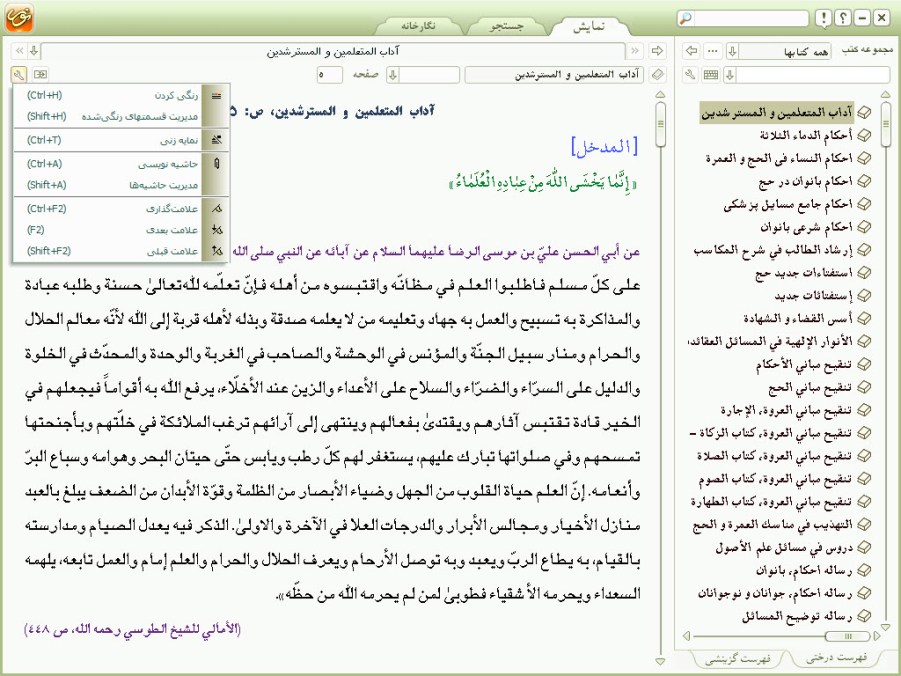 نمایش
جستجو
نگارخانه
مجموعه کتب
همه کتابها
آداب المتعلمین و المسترشدین
أحکام الدماء الثلاثة
احکام النساء فی الحج و العمرة
احکام بانوان در حج
احکام جامع مسایل پزشکی
احکام شرعی بانوان
إرشاد الطالب في شرح المکاسب
استفتاءات جدید حج
إستفتائات جدید
أسس القضاء و الشهادة
الأنوار الإلهیة في المسائل العقائد
تنقیح مباني الأحکام
تنقیح مباني الحج
تنقیح مباني العروة، الإجارة
تنقیح مباني العروة، کتاب الزکاة –
تنقیح مباني العروة، کتاب الصلاة
تنقیح مباني العروة، کتاب الصوم
تنقیح مباني العروة، کتاب الطهارة
التهذیب في مناسك العمرة و الحج
دروس في مسائل علم الأصول
رساله احکام، بانوان
رساله احکام، جوانان و نوجوانان
رساله توضیح المسائل
فهرست درختی
فهرست گزینشی
آداب المتعلمین و المسترشدین
آداب المتعلمین و المسترشدین
صفحه
۵
رنگی کردن (Ctrl+H)
مدیریت قسمتهای رنگی‌شده (Shift+H)
نمایه زنی (Ctrl+T)
حاشیه نویسی (Ctrl+A)
مدیریت حاشیه‌ها (Shift+A)
علامت‌گذاری (Ctrl+F2)
علامت بعدی (F2)
علامت قبلی (Shift+F2)
آداب المتعلمین و المسترشدین، ص: ۵
[المدخل]
« إِنَّمَا يَخْشَى اللَّهَ مِنْ عِبَادِهِ الْعُلَمَاءُ »
عن أبي الحسن عليّ بن موسى الرضا عليهما السلام عن آبائه عن النبي صلى الله
على كلّ مسلم فاطلبوا العلم في مظانّه واقتبسوه من أهله فإنّ تعلّمه لله‌تعالىٰ حسنة وطلبه عبادة
والمذاكرة به تسبيح والعمل به جهاد وتعليمه من لا يعلمه صدقة وبذله لأهله قربة إلى الله لأنّه معالم الحلال
والحرام ومنار سبيل الجنّة والمؤنس في الوحشة والصاحب في الغربة والوحدة والمحدّث في الخلوة
والدليل على السرّاء والضرّاء والسلاح على الأعداء والزين عند الأخلّاء، يرفع الله به أقواماً فيجعلهم في
الخير قادة تقتبس آثارهم ويقتدىٰ بفعالهم وينتهى إلى آرائهم ترغب الملائكة في خلّتهم وبأجنحتها
تمسحهم وفي صلواتها تبارك عليهم، يستغفر لهم كلّ رطب ويابس حتّى حيتان البحر وهوامه وسباع البرّ
وأنعامه. إنّ العلم حياة القلوب من الجهل وضياء الأبصار من الظلمة وقوّة الأبدان من الضعف يبلغ بالعبد
منازل الأخيار ومجالس الأبرار والدرجات العلا في الآخرة والاولىٰ. الذكر فيه يعدل الصيام ومدارسته
بالقيام، به يطاع الربّ ويعبد وبه توصل الأرحام ويعرف الحلال والحرام والعلم إمام والعمل تابعه، يلهمه
السعداء ويحرمه الأشقياء فطوبىٰ لمن لم يحرمه الله من حظّه».
(الأمالي للشيخ الطوسي رحمه الله، ص ۴۴۸)